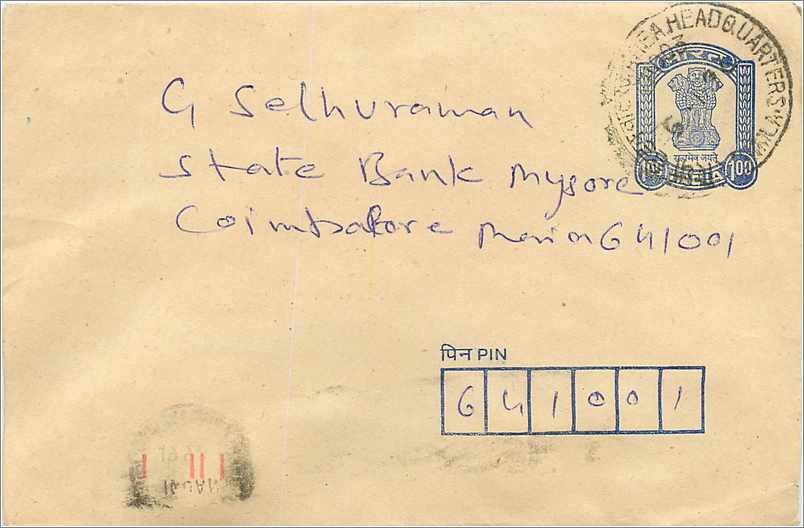 G Selhuraman
State Bank Mysore
Coimbatore Main 641001
HEADQUARTERS
भारत
सत्यमेव जयते
1.00
पिन PIN
6 4 1 0 0 1